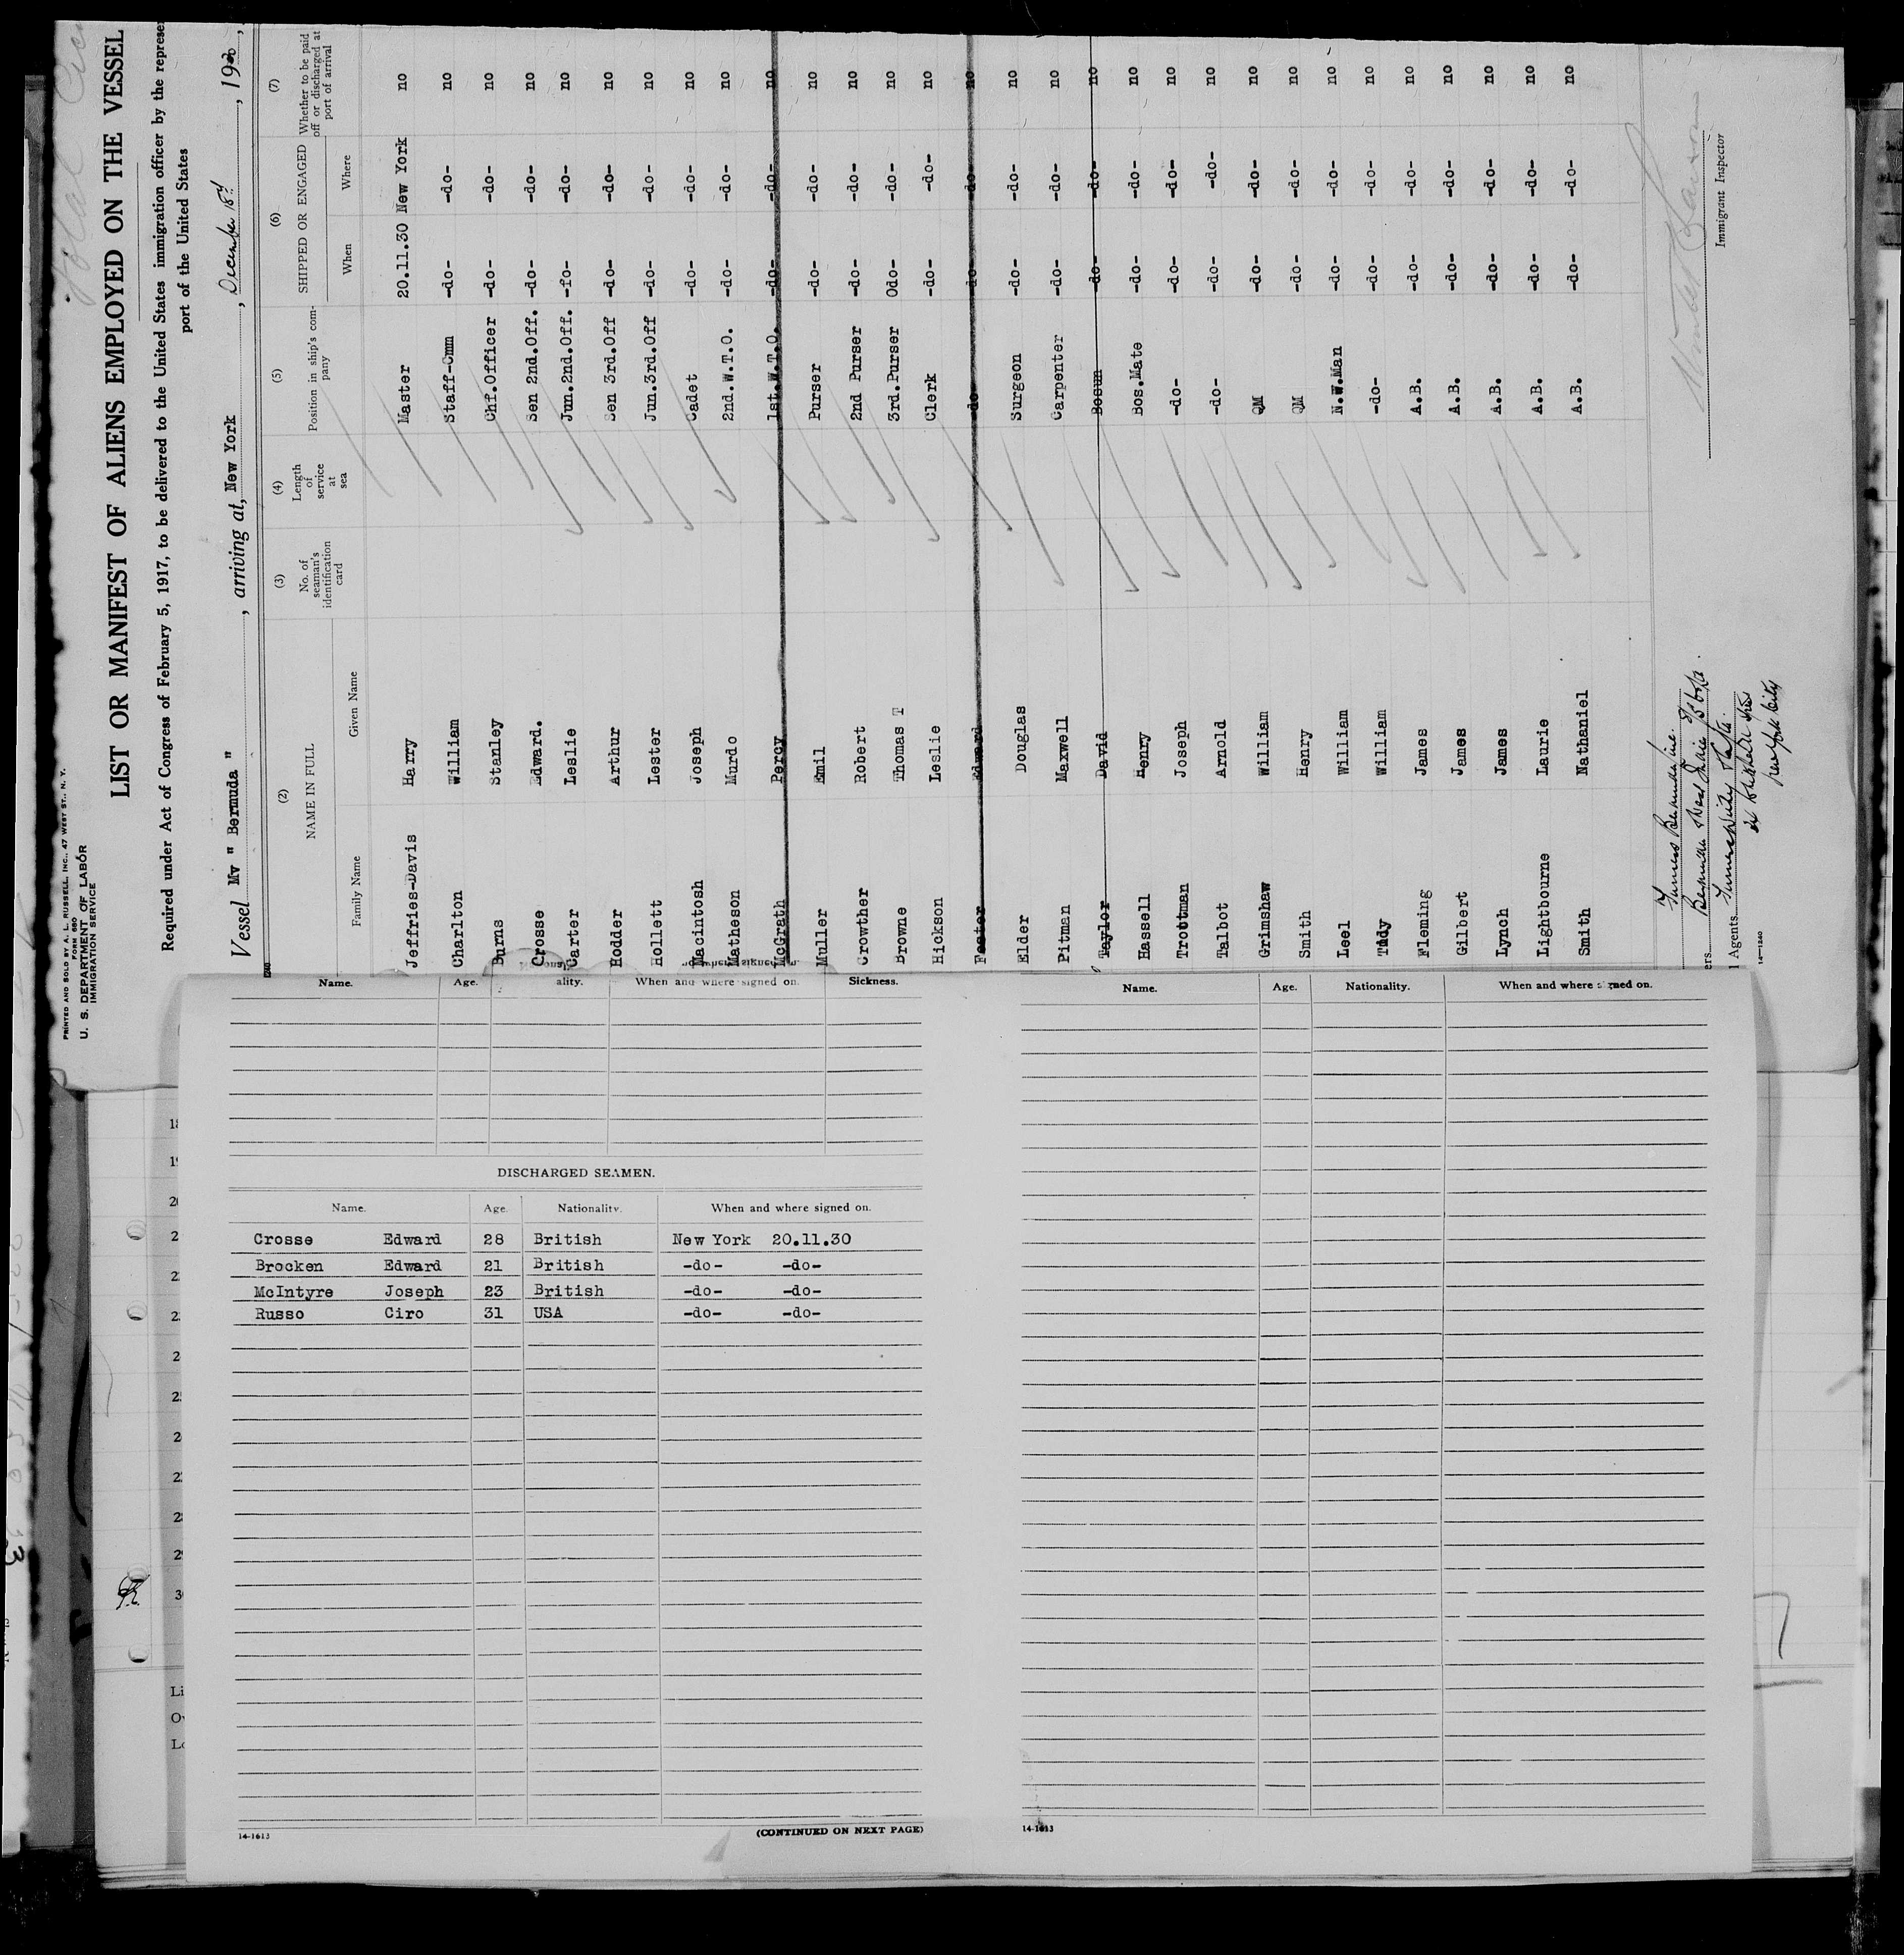 PRINTED AND SOLD BY A. L. RUSSELL, INC., 47 WEST ST., N. Y.
FORM 680
U. S. DEPARTMENT OF LABOR
IMMIGRATION SERVICE
LIST OR MANIFEST OF ALIENS EMPLOYED ON THE VESSEL
Required under Act of Congress of February 5, 1917, to be delivered to the United States immigration officer by the represe
port of the United States
Vessel Mv " Bermuda " , arriving at, New York , December 18th , 1930,
(2) (3) (4) (5) (6) (7)
NAME IN FULL No. of seaman's identification card Length of service at sea Position in ship's company SHIPPED OR ENGAGED Whether to be paid off or discharged at port of arrival
Family Name Given Name When Where
Jeffries-Davis Harry Master 20.11.30 New York no
Charlton William Staff-Cmm -do- -do- no
Burns Stanley Chf.Officer -do- -do- no
Crosse Edward. Sen 2nd.Off. -do- -do- no
Carter Leslie Jun.2nd.Off. -fo- -do- no
Hodder Arthur Sen 3rd.Off -do- -do- no
Hollett Lester Jun.3rd.Off -do- -do- no
Macintosh Joseph Cadet -do- -do- no
Matheson Murdo 2nd.W.T.O. -do- -do- no
McGrath Percy 1st.W.T.O. -do- -do- no
Muller Emil Purser -do- -do- no
Crowther Robert 2nd Purser -do- -do- no
Browne Thomas T 3rd.Purser 0do- -do- no
Hickson Leslie Clerk -do- -do- no
Edward -do- -do- -do- no
Elder Douglas Surgeon -do- -do- no
Pitman Maxwell Carpenter -do- -do- no
Taylor David Bosun -do- -do- no
Hassell Henry Bos.Mate -do- -do- no
Trottman Joseph -do- -do- -do- no
Talbot Arnold -do- -do- -do- no
Grimshaw William QM -do- -do- no
Smith Henry QM -do- -do- no
Leel William N.W.Man -do- -do- no
Tidy William -do- -do- -do- no
Fleming James A.B. -do- -do- no
Gilbert James A.B. -do- -do- no
Lynch James A.B. -do- -do- no
Lightbourne Laurie A.B. -do- -do- no
Smith Nathaniel A.B. -do- -do- no
Immigrant Inspector
ers
l Agents
14-1240
Name. Age. ality. When and where signed on. Sickness.
Name. Age. Nationality. When and where signed on.
DISCHARGED SEAMEN.
Name. Age. Nationality. When and where signed on.
Crosse Edward 28 British New York 20.11.30
Brocken Edward 21 British -do- -do-
McIntyre Joseph 23 British -do- -do-
Russo Ciro 31 USA -do- -do-
14-1613
(CONTINUED ON NEXT PAGE)
14-1613